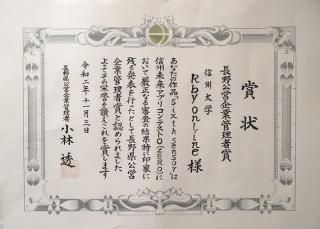 賞状
長野県公営企業管理者賞
信州大学
Kbyonline様
あなたの作品「sixth sensor」は
信州未来アプリコンテスト0(ZERO)に
おいて厳正なる審査の結果特に印象に
残る発表を行ったとして長野県公営
企業管理者賞と認められました
よってその栄誉を讃えこれを賞します
令和二年十一月三日
長野県公営企業管理者 小林 透